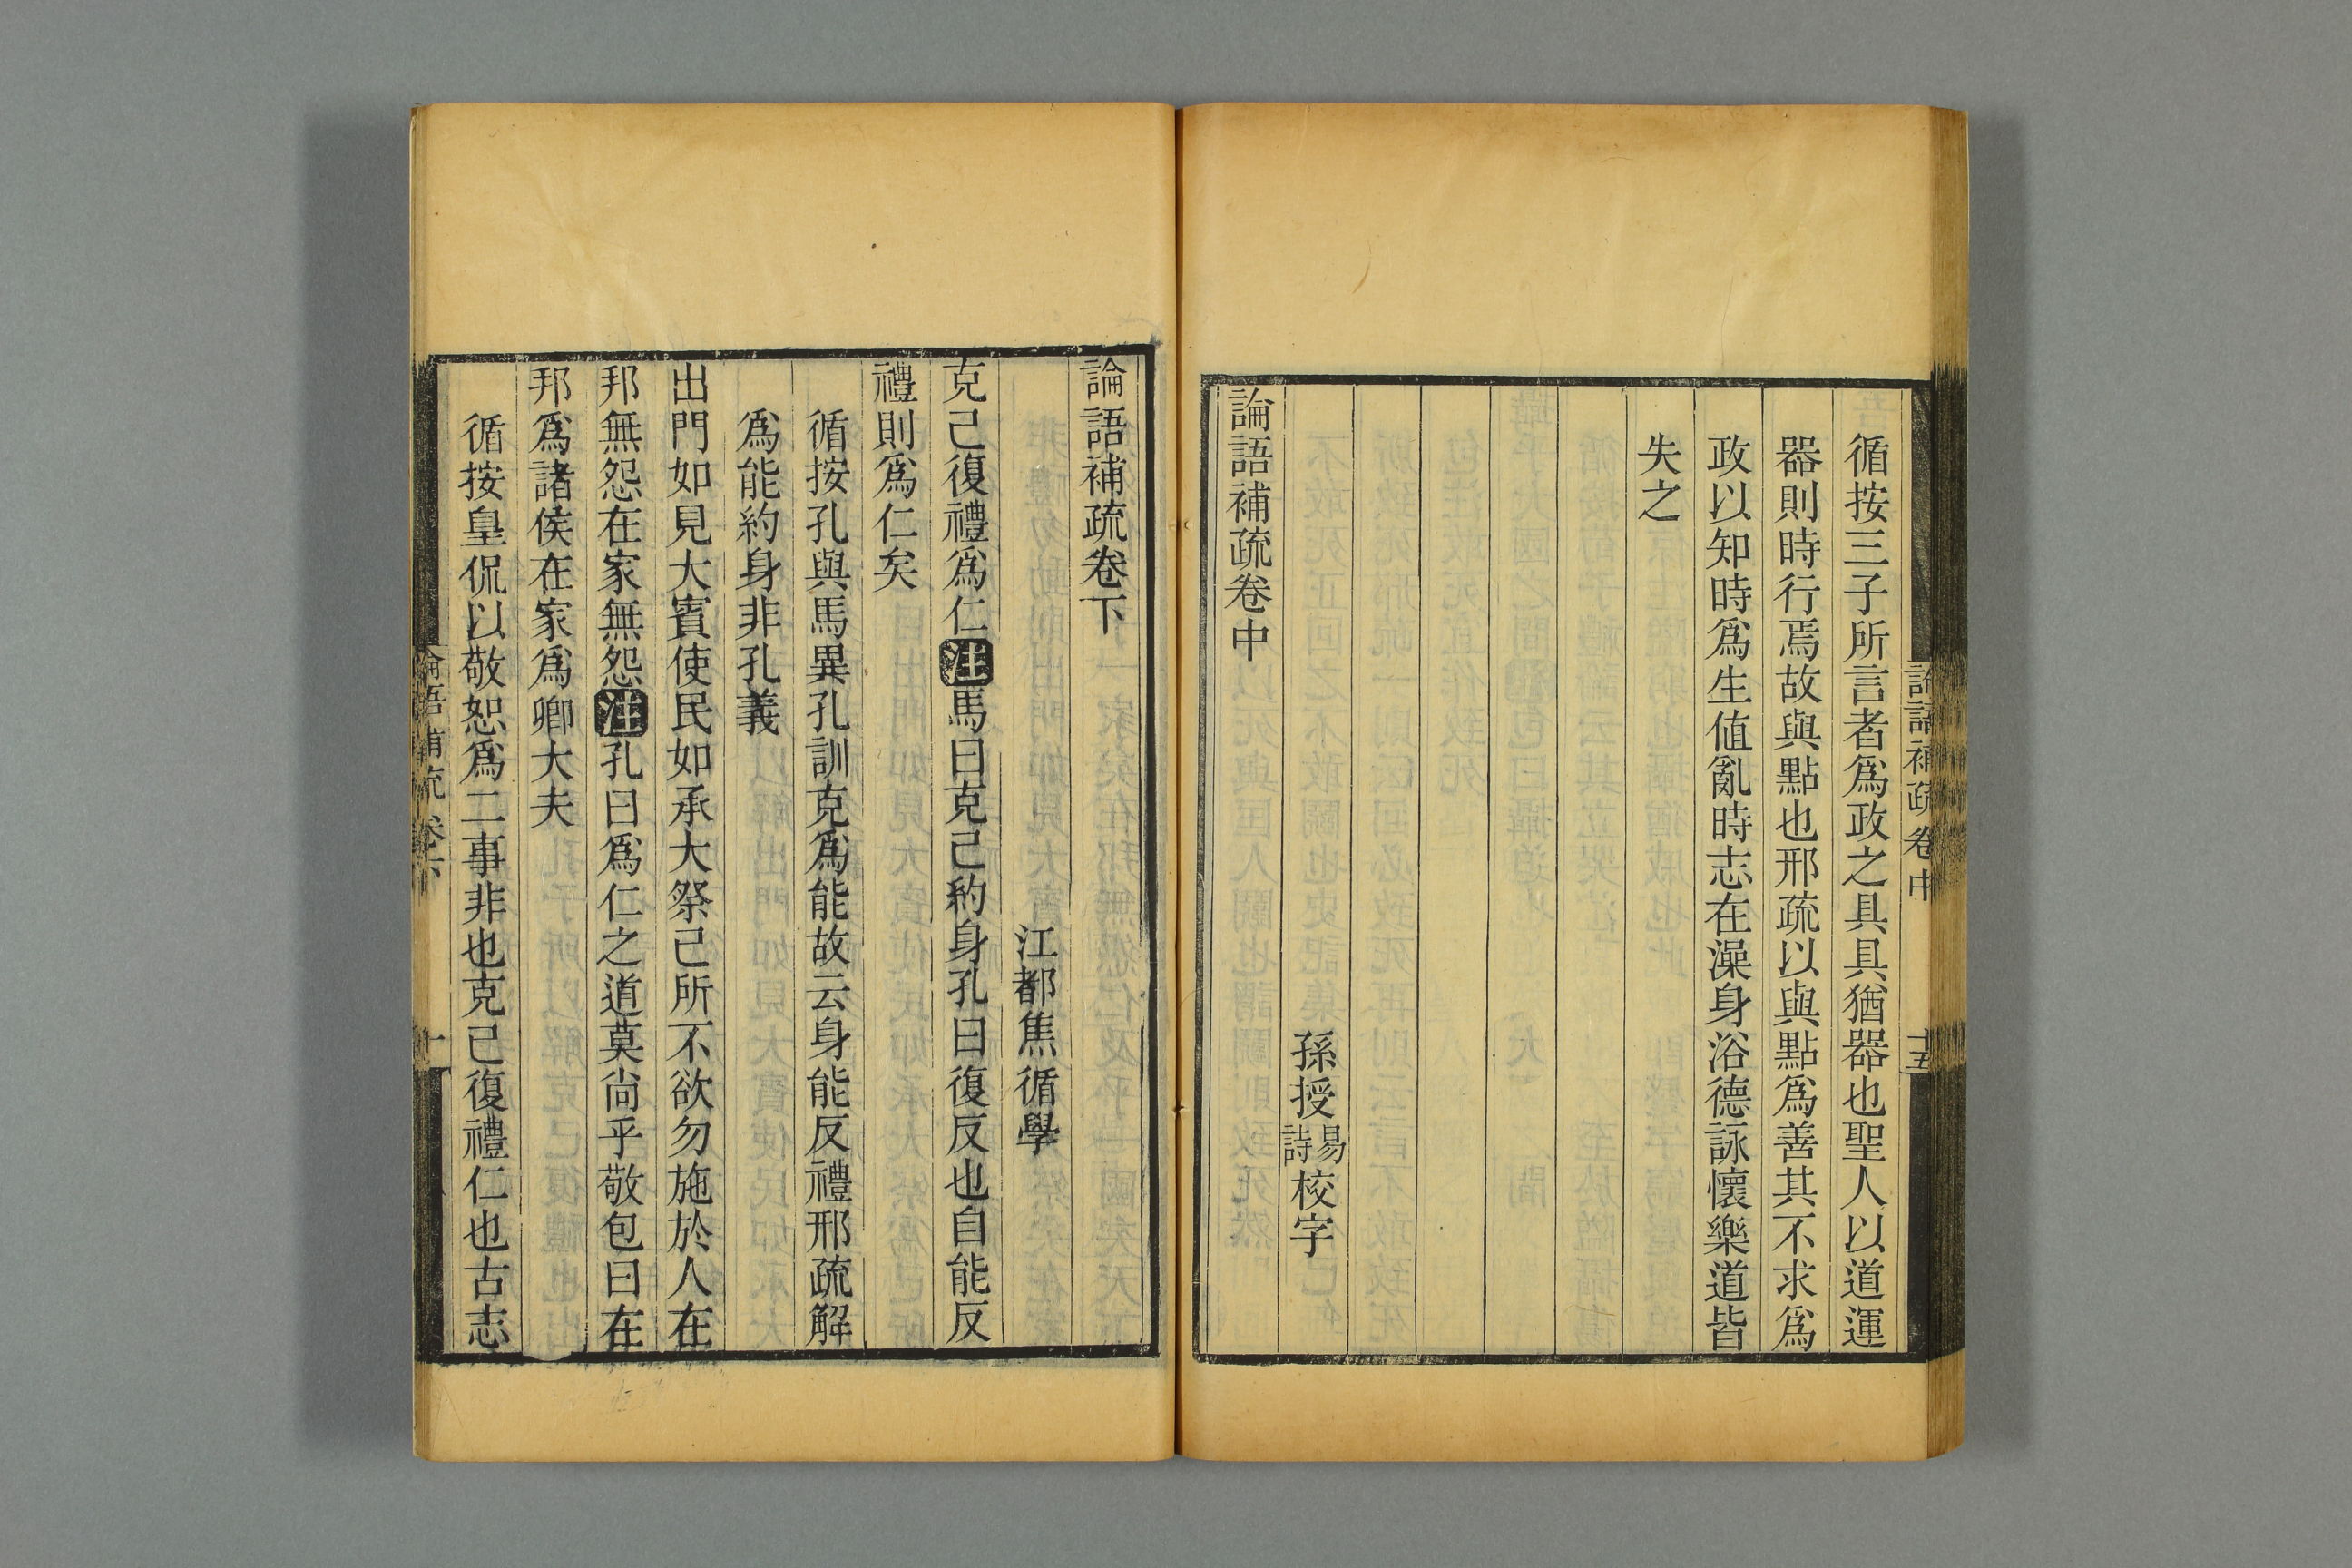 論語補疏卷中
十五
循按三子所言者爲政之具具猶器也聖人以道運
器則時行焉故與點也邢疏以與點爲善其不求爲
政以知時爲生値亂時志在澡身浴德詠懷樂道皆
失之
孫授易詩校字
論語補疏卷中
論語補疏卷下
江都焦循學
克己復禮爲仁注馬曰克己約身孔曰復反也自能反
禮則爲仁矣
循按孔與馬異孔訓克爲能故云身能反禮邢疏解
爲能約身非孔義
出門如見大賓使民如承大祭己所不欲勿施於人在
邦無怨在家無怨注孔曰爲仁之道莫尚乎敬包曰在
邦爲諸侯在家爲卿大夫
循按皇侃以敬恕爲二事非也克己復禮仁也古志
論語補疏 卷下
一